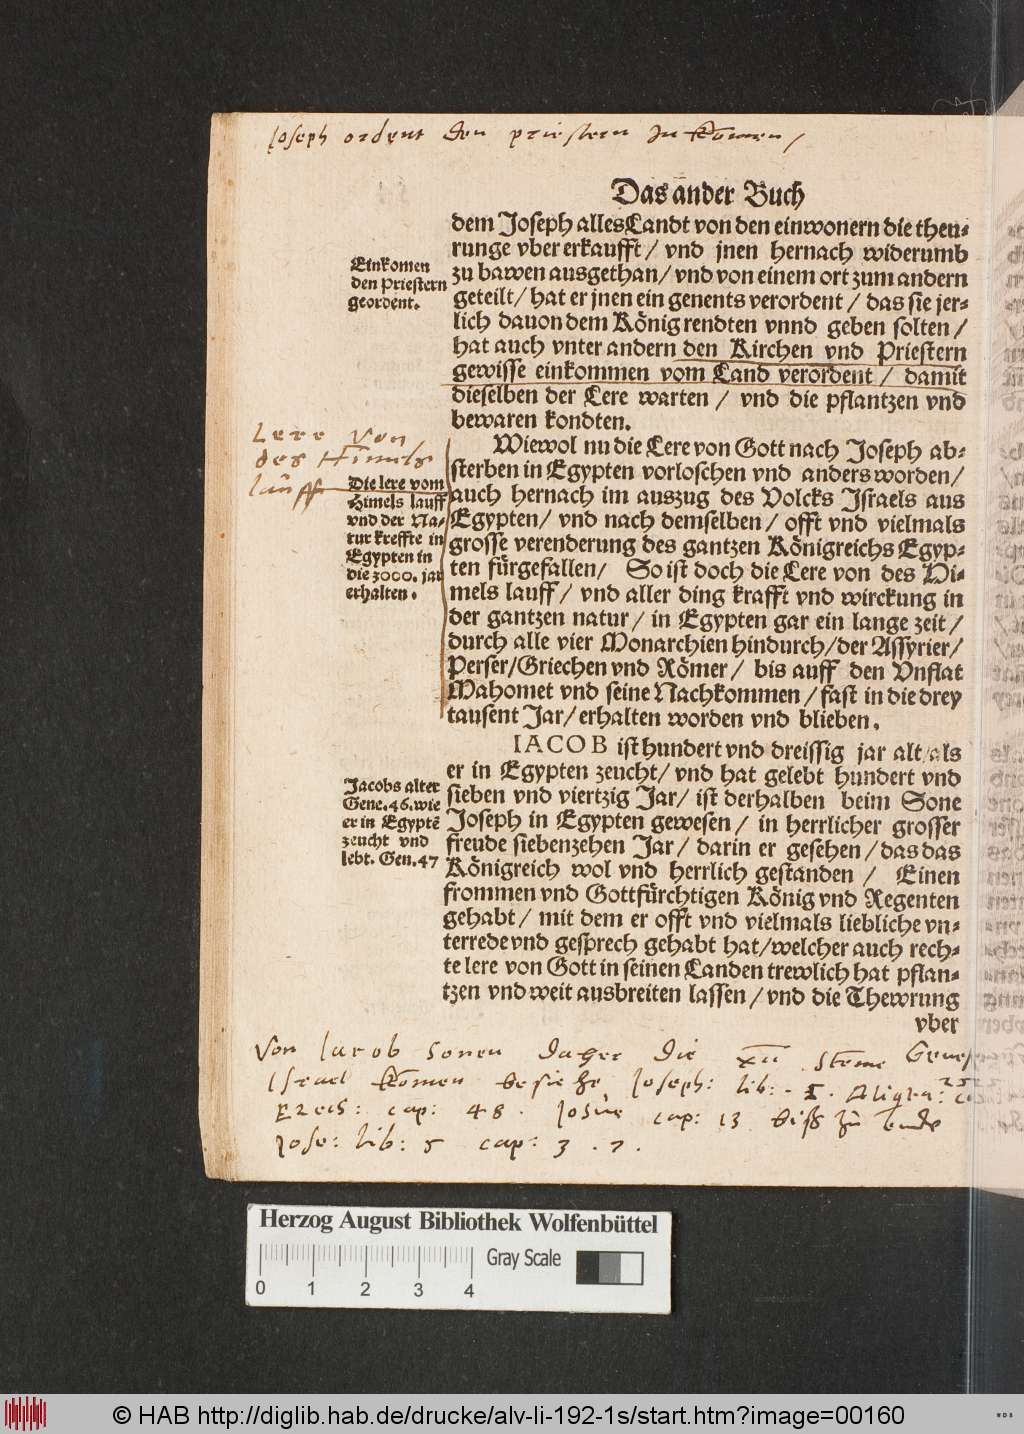 Joseph ordent den priestern zu komen /
Das ander Buch
dem Joseph alles Landt von den einwonern die theu-
runge vber erkaufft / vnd jnen hernach widerumb
zu bawen ausgethan / vnd von einem ort zum andern
geteilt / hat er jnen ein genents verordent / das sie jer-
lich dauon dem König rendten vnnd geben solten /
hat auch vnter andern den Kirchen vnd Priestern
gewisse einkommen vom Land verordent / damit
dieselben der Lere warten / vnd die pflantzen vnd
bewaren kondten.
Einkomen
den Priestern
geordent.
Wiewol nu die Lere von Gott nach Joseph ab-
sterben in Egypten vorloschen vnd anders worden /
auch hernach im auszug des Volcks Israels aus
Egypten / vnd nach demselben / offt vnd vielmals
grosse verenderung des gantzen Königreichs Egyp-
ten fürgefallen / So ist doch die Lere von des Hi-
mels lauff / vnd aller ding krafft vnd wirckung in
der gantzen natur / in Egypten gar ein lange zeit /
durch alle vier Monarchien hindurch / der Assyrier /
Perser / Griechen vnd Römer / bis auff den Vnflat
Mahomet vnd seine Nachkommen / fast in die drey
tausent Jar / erhalten worden vnd blieben.
Lere von
des Himels
lauff
Die lere vom
Himels lauff
vnd der Na-
tur kreffte in
Egypten in
die 3000. jar
erhalten.
IACOB ist hundert vnd dreissig jar alt / als
er in Egypten zeucht / vnd hat gelebt hundert vnd
sieben vnd viertzig Jar / ist derhalben beim Sone
Joseph in Egypten gewesen / in herrlicher grosser
freude siebenzehen Jar / darin er gesehen / das das
Königreich wol vnd herrlich gestanden / Einen
frommen vnd Gottfürchtigen König vnd Regenten
gehabt / mit dem er offt vnd vielmals liebliche vn-
terrede vnd gesprech gehabt hat / welcher auch rech-
te lere von Gott in seinen Landen trewlich hat pflan-
tzen vnd weit ausbreiten lassen / vnd die Thewrung
vber
Jacobs alter
Gene. 46. wie
er in Egyptē
zeucht vnd
lebt. Gen. 47
Von Jacob sonen daher die xii Steme
Israel komen besiehe Joseph: lib:
Ezech: cap: 48. Josue cap: 13 biß zu Ende
Jose: lib: 5 cap: 3 . 7.
Herzog August Bibliothek Wolfenbüttel
Gray Scale
0 1 2 3 4
© HAB http://diglib.hab.de/drucke/alv-li-192-1s/start.htm?image=00160